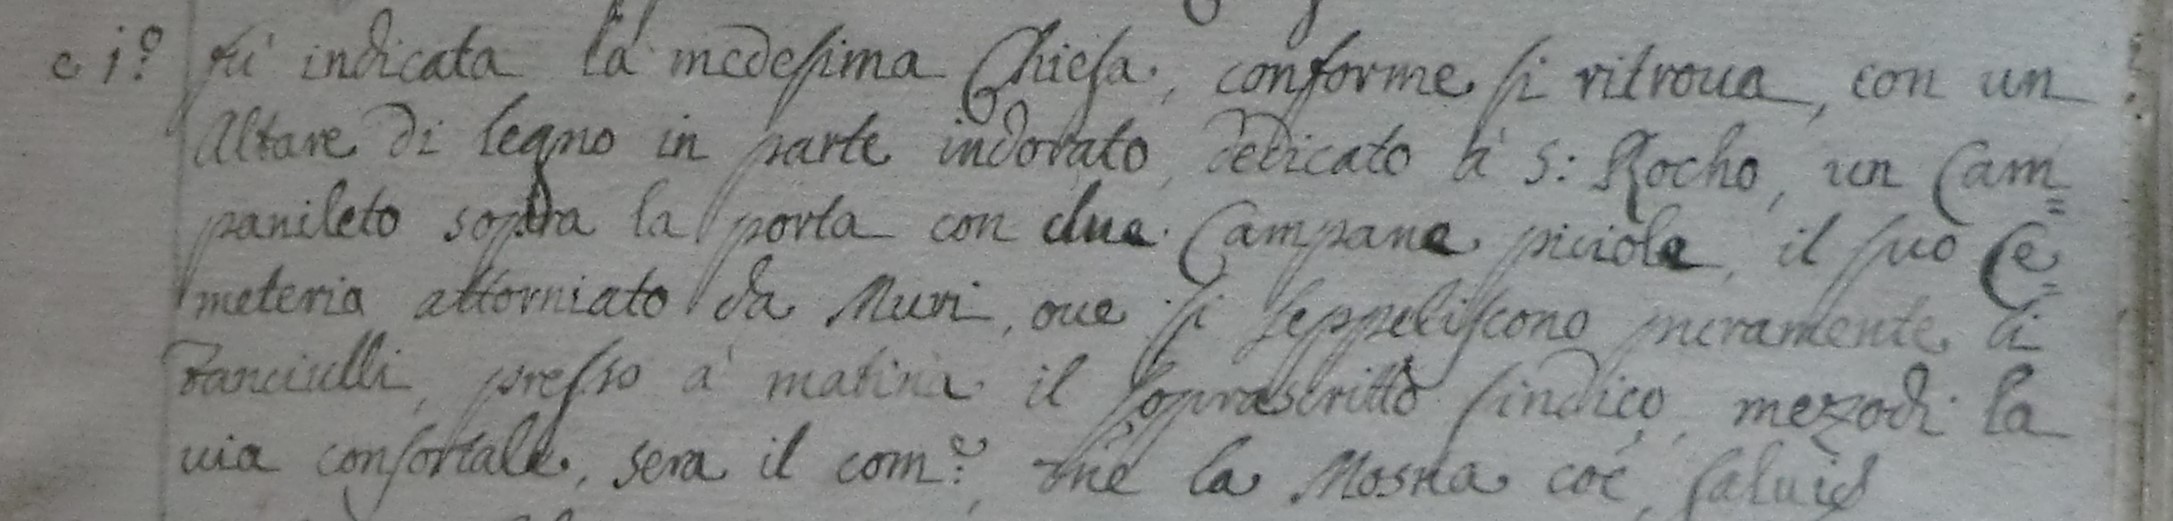 e j.º fù indicata la medesima Chiesa, conforme si ritroua, con un
Altare di legno in parte indorato, dedicato à S: Rocho, un Cam=
panileto sopra la porta con due Campane piciole, il suo Ce=
meterio attorniato da Muri, oue si seppeliscono meramente li
Fanciulli, presso a matina il soprascritto sindico, mezodi la
uia consortale, sera il com.e, n̄ē la Mosna coē, saluis